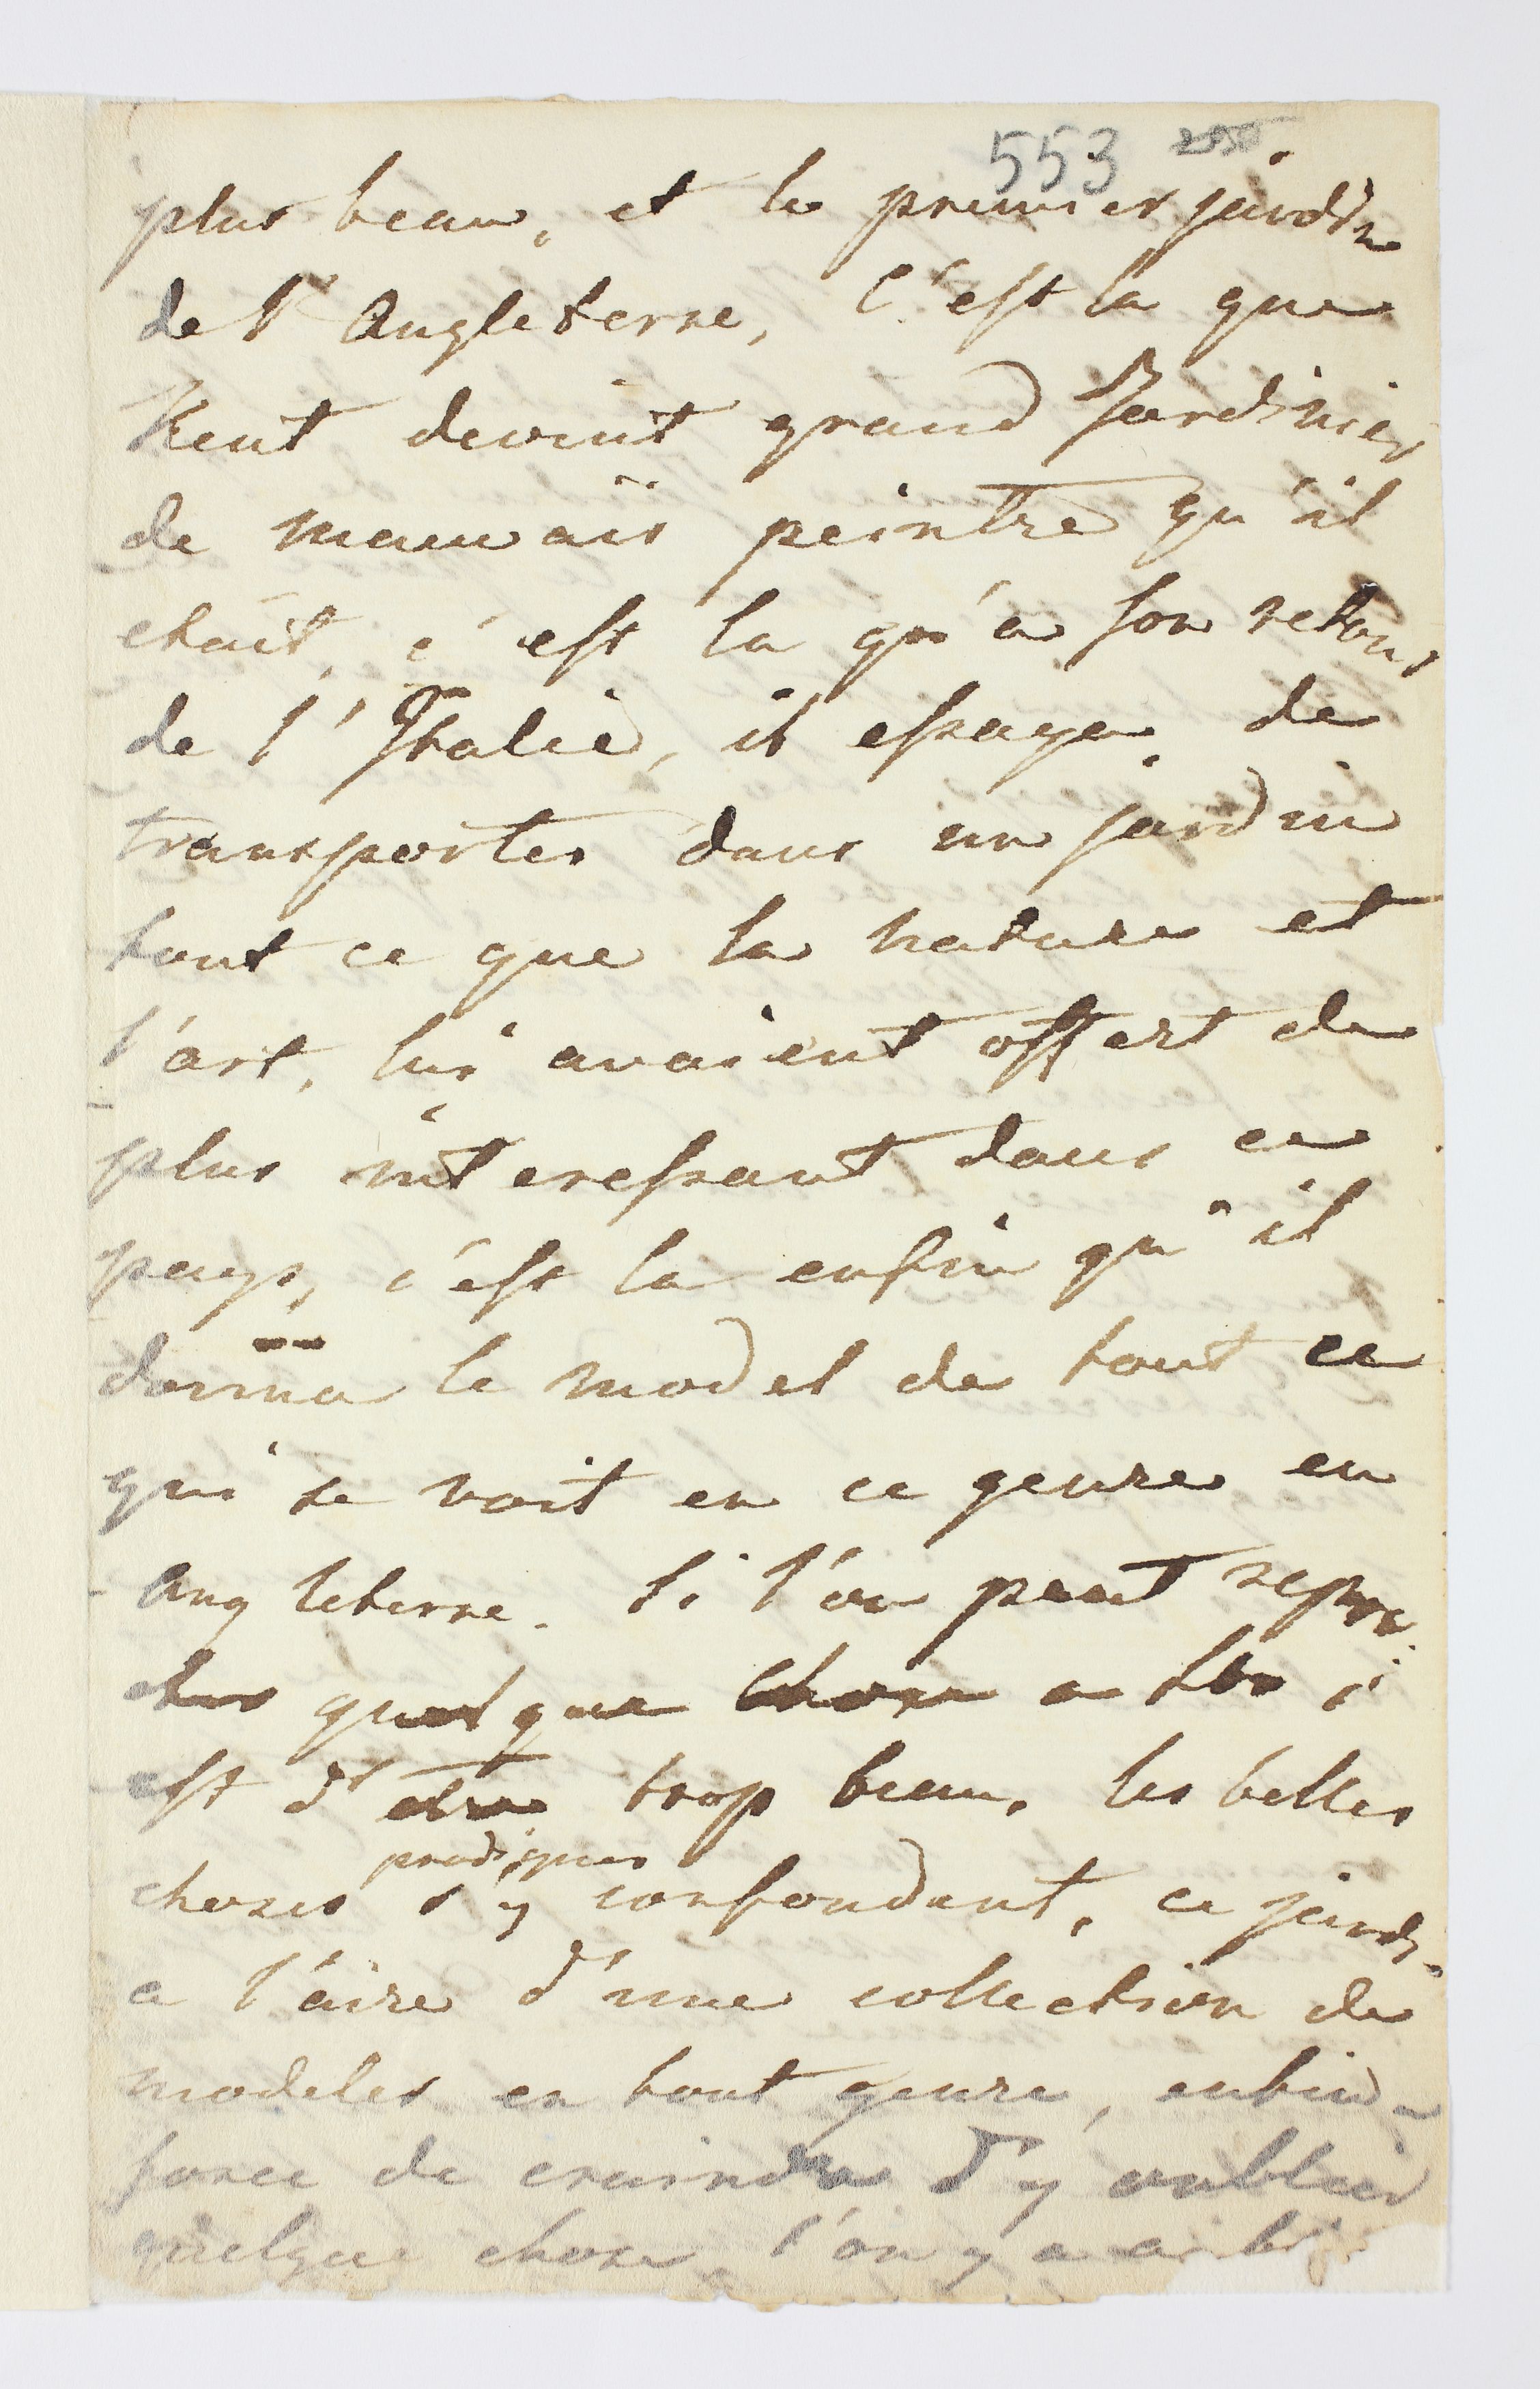 553
plus beau, et le premier jardin
de l'Angleterre, C'est la que
Kent devint grand Jardinier
de mauvais peintre qu'il
etait, c'est la qu'a son retour
de l'Italie, il essaya de
transporter dans un jardin
tout ce que la nature et
l'art, lui avaient offert de
plus interessant dans ce
pays, c'est la enfin qu'il
donna le model de tout ce
qui se voit en ce genre en
Angleterre. Si l'on peut repro
cher quelque chose a c'
est d'etre trop beau, les belles
prodigues
choses s'y confondent, ce jardin
a l'aire d'une collection de
modeles en tout genre, enfin a
force de craindre d'y oublier
quelque chose, l'on y a